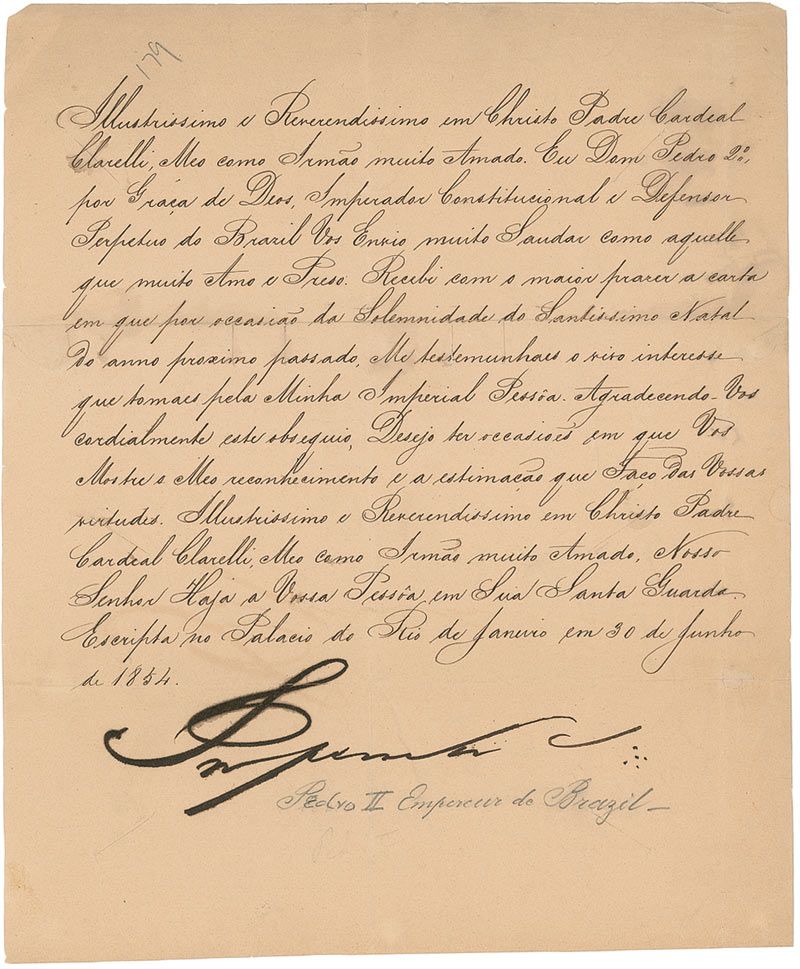 179
Illustrissimo e Reverendissimo em Christo Padre Cardeal
Clarelli, Meo como Irmão muito Amado. Eu Dom Pedro 2º,
por Graça de Deos, Imperador Constitucional e Defensor
Perpetuo do Brazil Vos Envio muito Saudar como aquelle
que muito Amo e Preso. Recebi com o maior prazer a carta
em que por occasião da Solemnidade do Santissimo Natal
do anno proximo passado, Me testemunhaes o vivo interesse
que tomaes pela Minha Imperial Pessôa. Agradecendo-Vos
cordialmente este obsequio, Desejo ter occasiões em que Vos
Mostre o Meo reconhecimento e a estimação que Faço das Vossas
virtudes. Illustrissimo e Reverendissimo em Christo Padre
Cardeal Clarelli, Meo como Irmão muito Amado, Nosso
Senhor Haja a Vossa Pessôa em Sua Santa Guarda.
Escripta no Palacio do Rio de Janeiro em 30 de Junho
de 1854.
Imperador
Pedro II Empereur de Brazil_